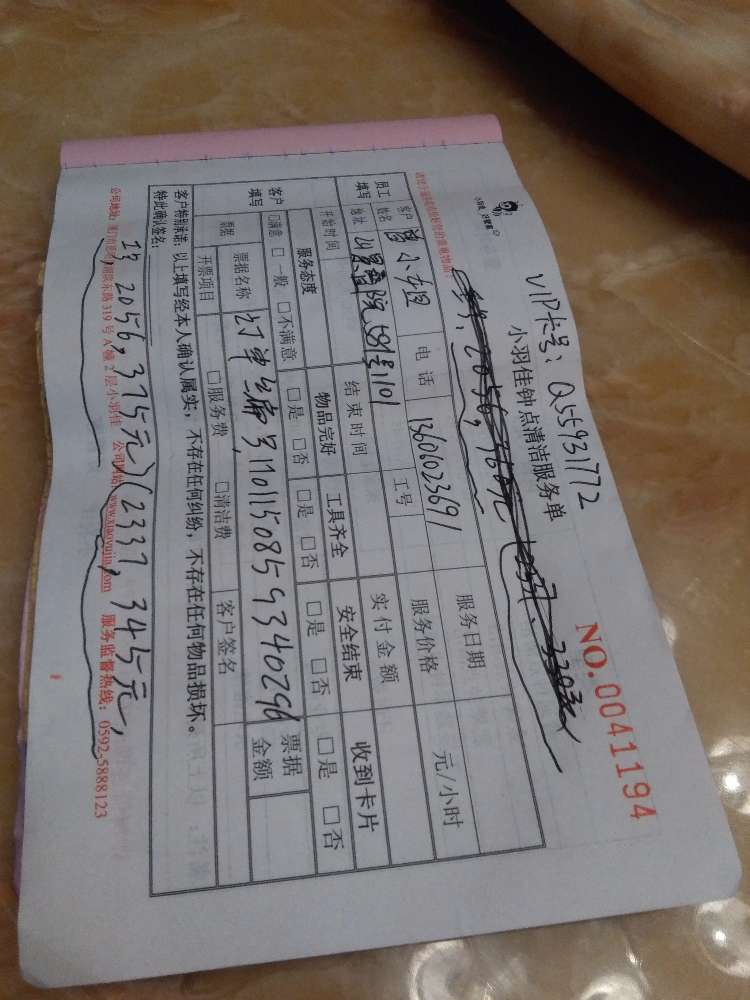 VIP卡号：Q55931772
小羽佳钟点清洁服务单
NO.0041194
员工填写
客户姓名
小姐
电话
13601023691
服务日期
地址
581号1101
工号
服务价格
元/小时
开始时间
结束时间
实付金额
客户填写
服务态度
物品完好
工具齐全
安全结束
收到卡片
□满意 □一般 □不满意
□是 □否
□是 □否
□是 □否
□是 □否
票据
票据名称
订单编号1701150859340296
票据金额
开票项目
□服务费 □清洁费
客户签名
客户特别承诺：以上填写经本人确认属实，不存在任何纠纷，不存在任何物品损坏。
特此确认签名：
公司地址： 湖滨东路319号A幢2层小羽佳 公司网站：www.xiaoyujia.com 服务监督热线：0592-5888123
2056，375元）（2337，345元，